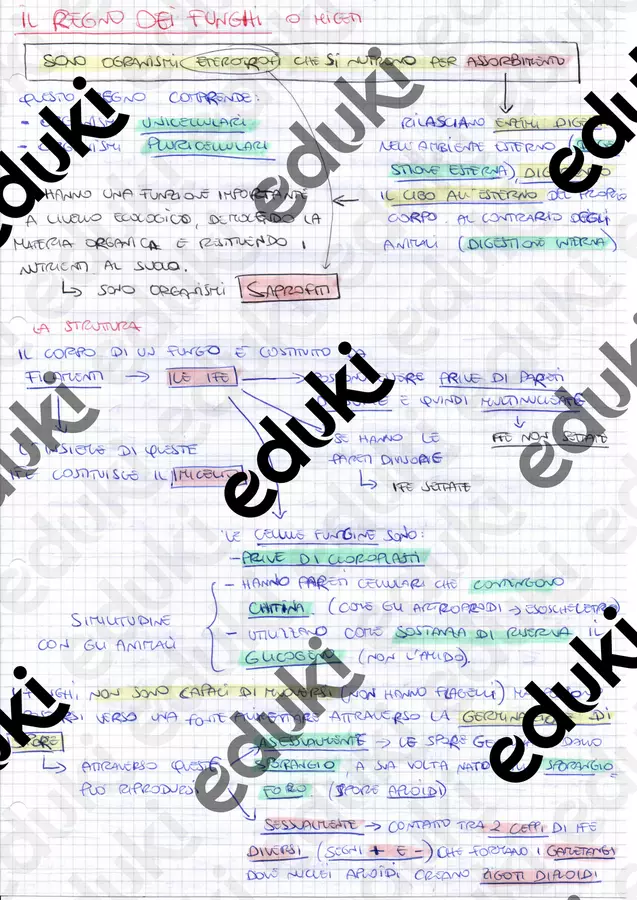 IL REGNO DEI FUNGHI O MICETI
SONO ORGANISMI ETEROTROFI CHE SI NUTRONO PER ASSORBIMENTO
QUESTO REGNO COMPRENDE:
- ORGANISMI UNICELLULARI
- ORGANISMI PLURICELLULARI
RILASCIANO ENZIMI
NELL'AMBIENTE ESTERNO
STIONE ESTERNA),
IL CIBO ALL'ESTERNO DEL PROPRIO
CORPO AL CONTRARIO DEGLI
ANIMALI (DIGESTIONE INTERNA)
HANNO UNA FUNZIONE IMPORTANTE
A LIVELLO ECOLOGICO, DEMOLENDO LA
MATERIA ORGANICA E RESTITUENDO I
NUTRIENTI AL SUOLO.
↳ SONO ORGANISMI SAPROFITI
LA STRUTTURA
IL CORPO DI UN FUNGO È COSTITUITO DA
FILAMENTI → ILE IFE
ESSERE PRIVE DI PARETI
E QUINDI MULTINUCLEATE
↓
IFE NON SETTATE
SE HANNO LE
PARETI DIVISORIE
↳ IFE SETTATE
L'INSIEME DI QUESTE
IFE COSTITUISCE IL MICELIO
LE CELLULE FUNGINE SONO:
- PRIVE DI CLOROPLASTI
- HANNO PARETI CELLULARI CHE CONTENGONO
CHITINA (COME GLI ARTROPRODI → ESOSCHELETRO)
- UTILIZZANO COME SOSTANZA DI RISERVA IL
GLICOGENO (NON L'AMIDO).
SIMILITUDINE
CON GLI ANIMALI
NON SONO CAPACI DI MUOVERSI (NON HANNO FLAGELLI)
VERSO UNA FONTE ALIMENTARE ATTRAVERSO LA GERMINAZIONE DI
SPORE
↳ ATTRAVERSO QUESTE
PUÒ RIPRODURSI
ASESSUALMENTE → LE SPORE
SPORANGIO, A SUA VOLTA NATO SPORANGIO
FORO (SPORE APLOIDI)
SESSUALMENTE → CONTATTO TRA 2 CEPPI DI IFE
DIVERSI (SEGNI + E -) CHE FORMANO I GAMETANGI
DOVE NUCLEI APLOIDI CREANO ZIGOTI DIPLOIDI
eduki
eduki
eduki
eduki
eduki
eduki
eduki
eduki